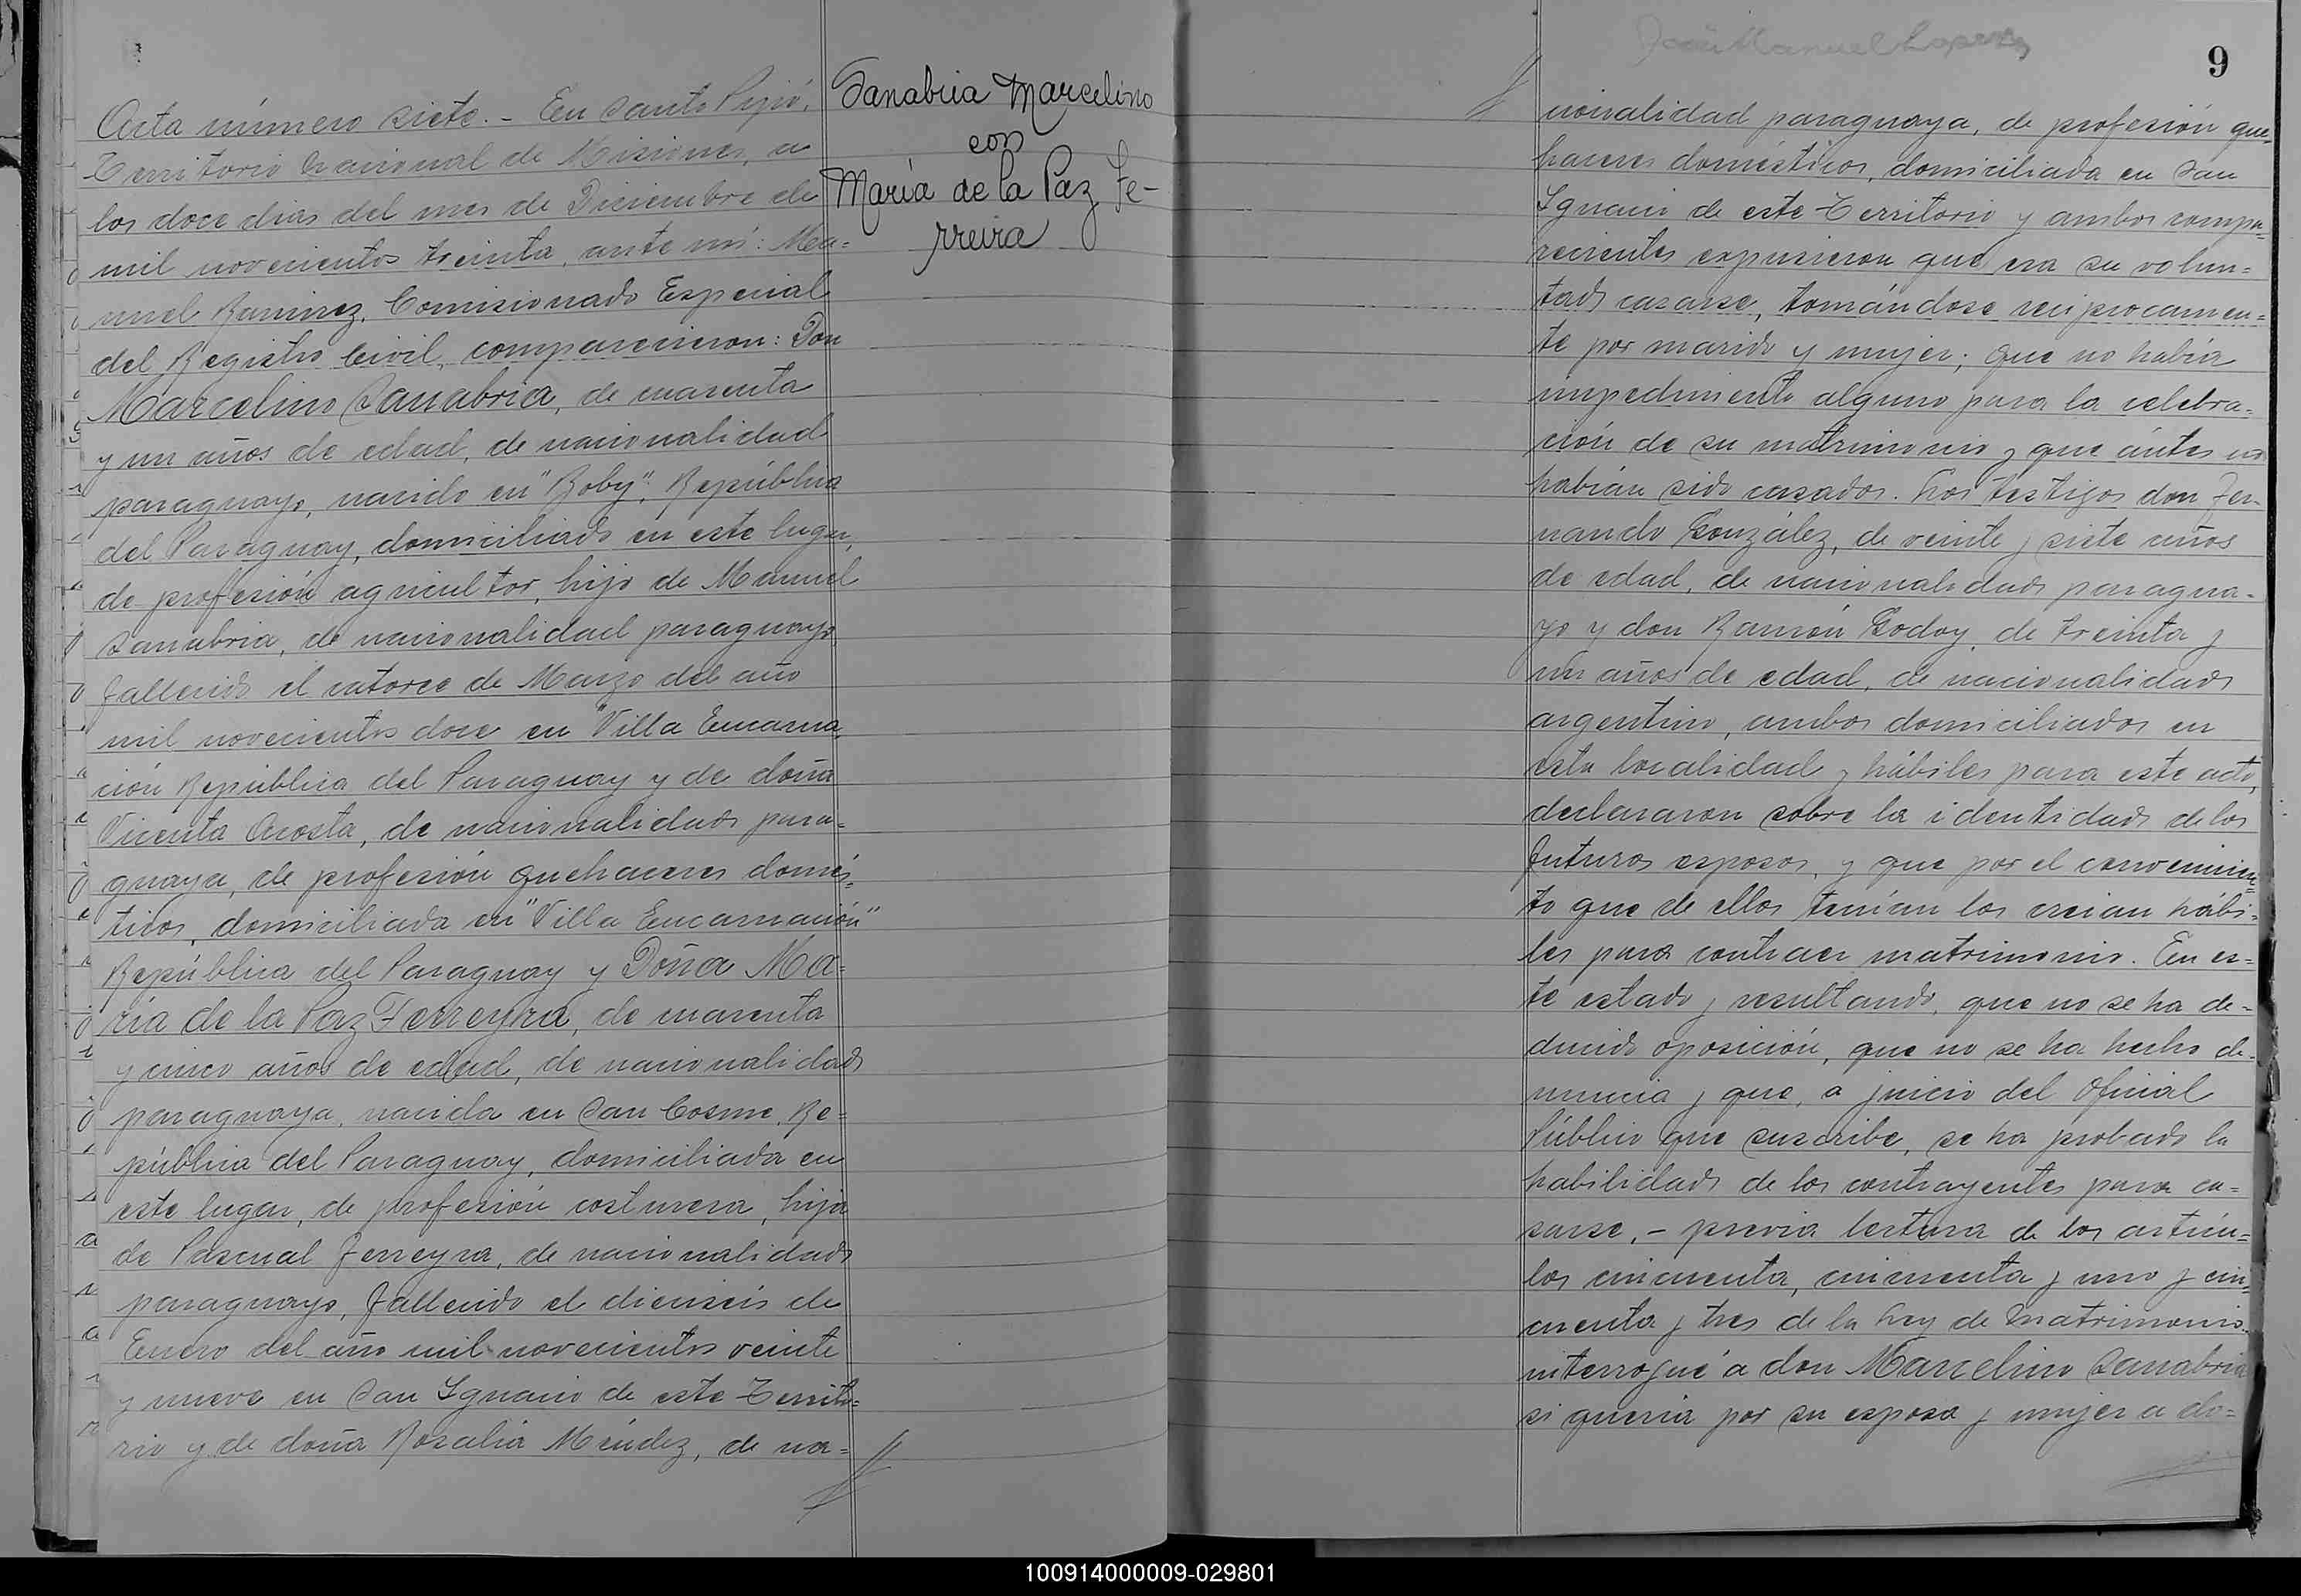 Acta número siete. - En Santo Pipó,
Territorio Nacional de Misiones, a
los doce dias del mes de Diciembre de
mil novecientos treinta, ante mí: Ma=
nuel Ramirez, Comisionado Especial
del Registro Civil, comparecieron: Don
Marcelino Sanabria, de cuarenta
y un años de edad, de nacionalidad
paraguayo, nacido en "Boby", República
del Paraguay, domiciliado en este lugar,
de profesión agricultor, hijo de Manuel
Sanabria, de nacionalidad paraguayo,
fallecido el catorce de Marzo del año
mil novecientos doce en "Villa Encarna
ción República del Paraguay y de doña
Vicenta Acosta, de nacionalidad para=
guaya, de profesión quehaceres domés=
ticos, domiciliada en "Villa Encarnación"
República del Paraguay y Doña Ma=
ría de la Paz Ferreyra, de cuarenta
y cinco años de edad, de nacionalidad
paraguaya, nacida en San Cosme, Re=
pública del Paraguay, domiciliada en
este lugar, de profesión costurera, hija
de Pascual Ferreyra, de nacionalidad
paraguayo, fallecido el dieciseis de
Enero del año mil novecientos veinte
y nueve en San Ignacio de este Territo=
rio y de doña Rosalia Méndez, de na=
Sanabria Marcelino
con
María de la Paz Fe-
rreira
9
cionalidad paraguaya, de profesión que=
haceres domésticos, domiciliada en San
Ignacio de este Territorio y ambos compa=
recientes expusieron que era su volun=
tad casarse, tomándose reciprocamen=
te por marido y mujer; que no había
impedimento alguno para la celebra=
ción de su matrimonio y que ántes no
habían sido casados. Los testigos don Fer-
nando González, de veinte y siete años
de edad, de nacionalidad paragua-
yo y don Ramón Godoy, de treinta y
un años de edad, de nacionalidad
argentino, ambos domiciliados en
esta localidad y hábiles para este acto,
declararon sobre la identidad de los
futuros esposos, y que por el conocimien=
to que de ellos tenían los creían hábi=
les para contraer matrimonio. En es=
te estado y resultando, que no se ha de-
ducido oposición, que no se ha hecho de-
nuncia y que, a juicio del Oficial
Público que suscribe, se ha probado la
habilidad de los contrayentes para ca=
sarse, - previa lectura de los artícu=
los cincuenta, cincuenta y uno y cin=
cuenta y tres de la Ley de Matrimonio
interrogué a don Marcelino Sanabria
si quería por su esposa y mujer a do=
100914000009-029801